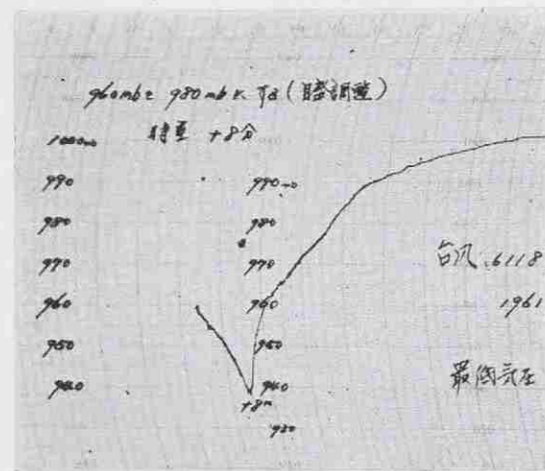 960mbを 980mbに
時更 +8分
1000mb
990
980
970
960
950
940
990mb
980
970
960
950
940
+8m
930
台风.6118
1961
最低気圧